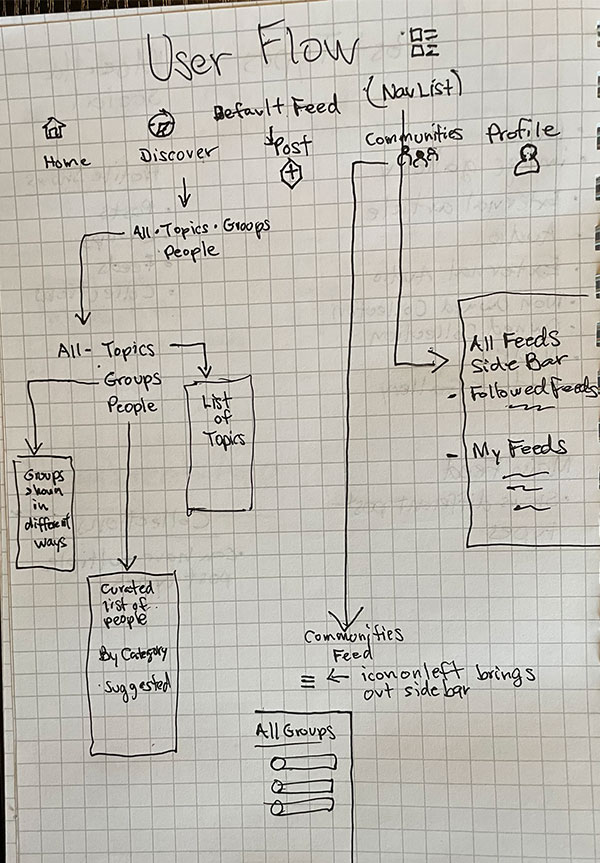 User Flow
(Nav List)
Default Feed
Home
Discover
Post
Communities
Profile
All · Topics · Groups
People
All - Topics
Groups
People
List
of
Topics
Groups
shown
in
different
ways
Curated
list of
people
By Category
· Suggested
All Feeds
Side Bar
- Followed Feeds
- My Feeds
Communities
Feed
← icon on left brings
out side bar
All Groups